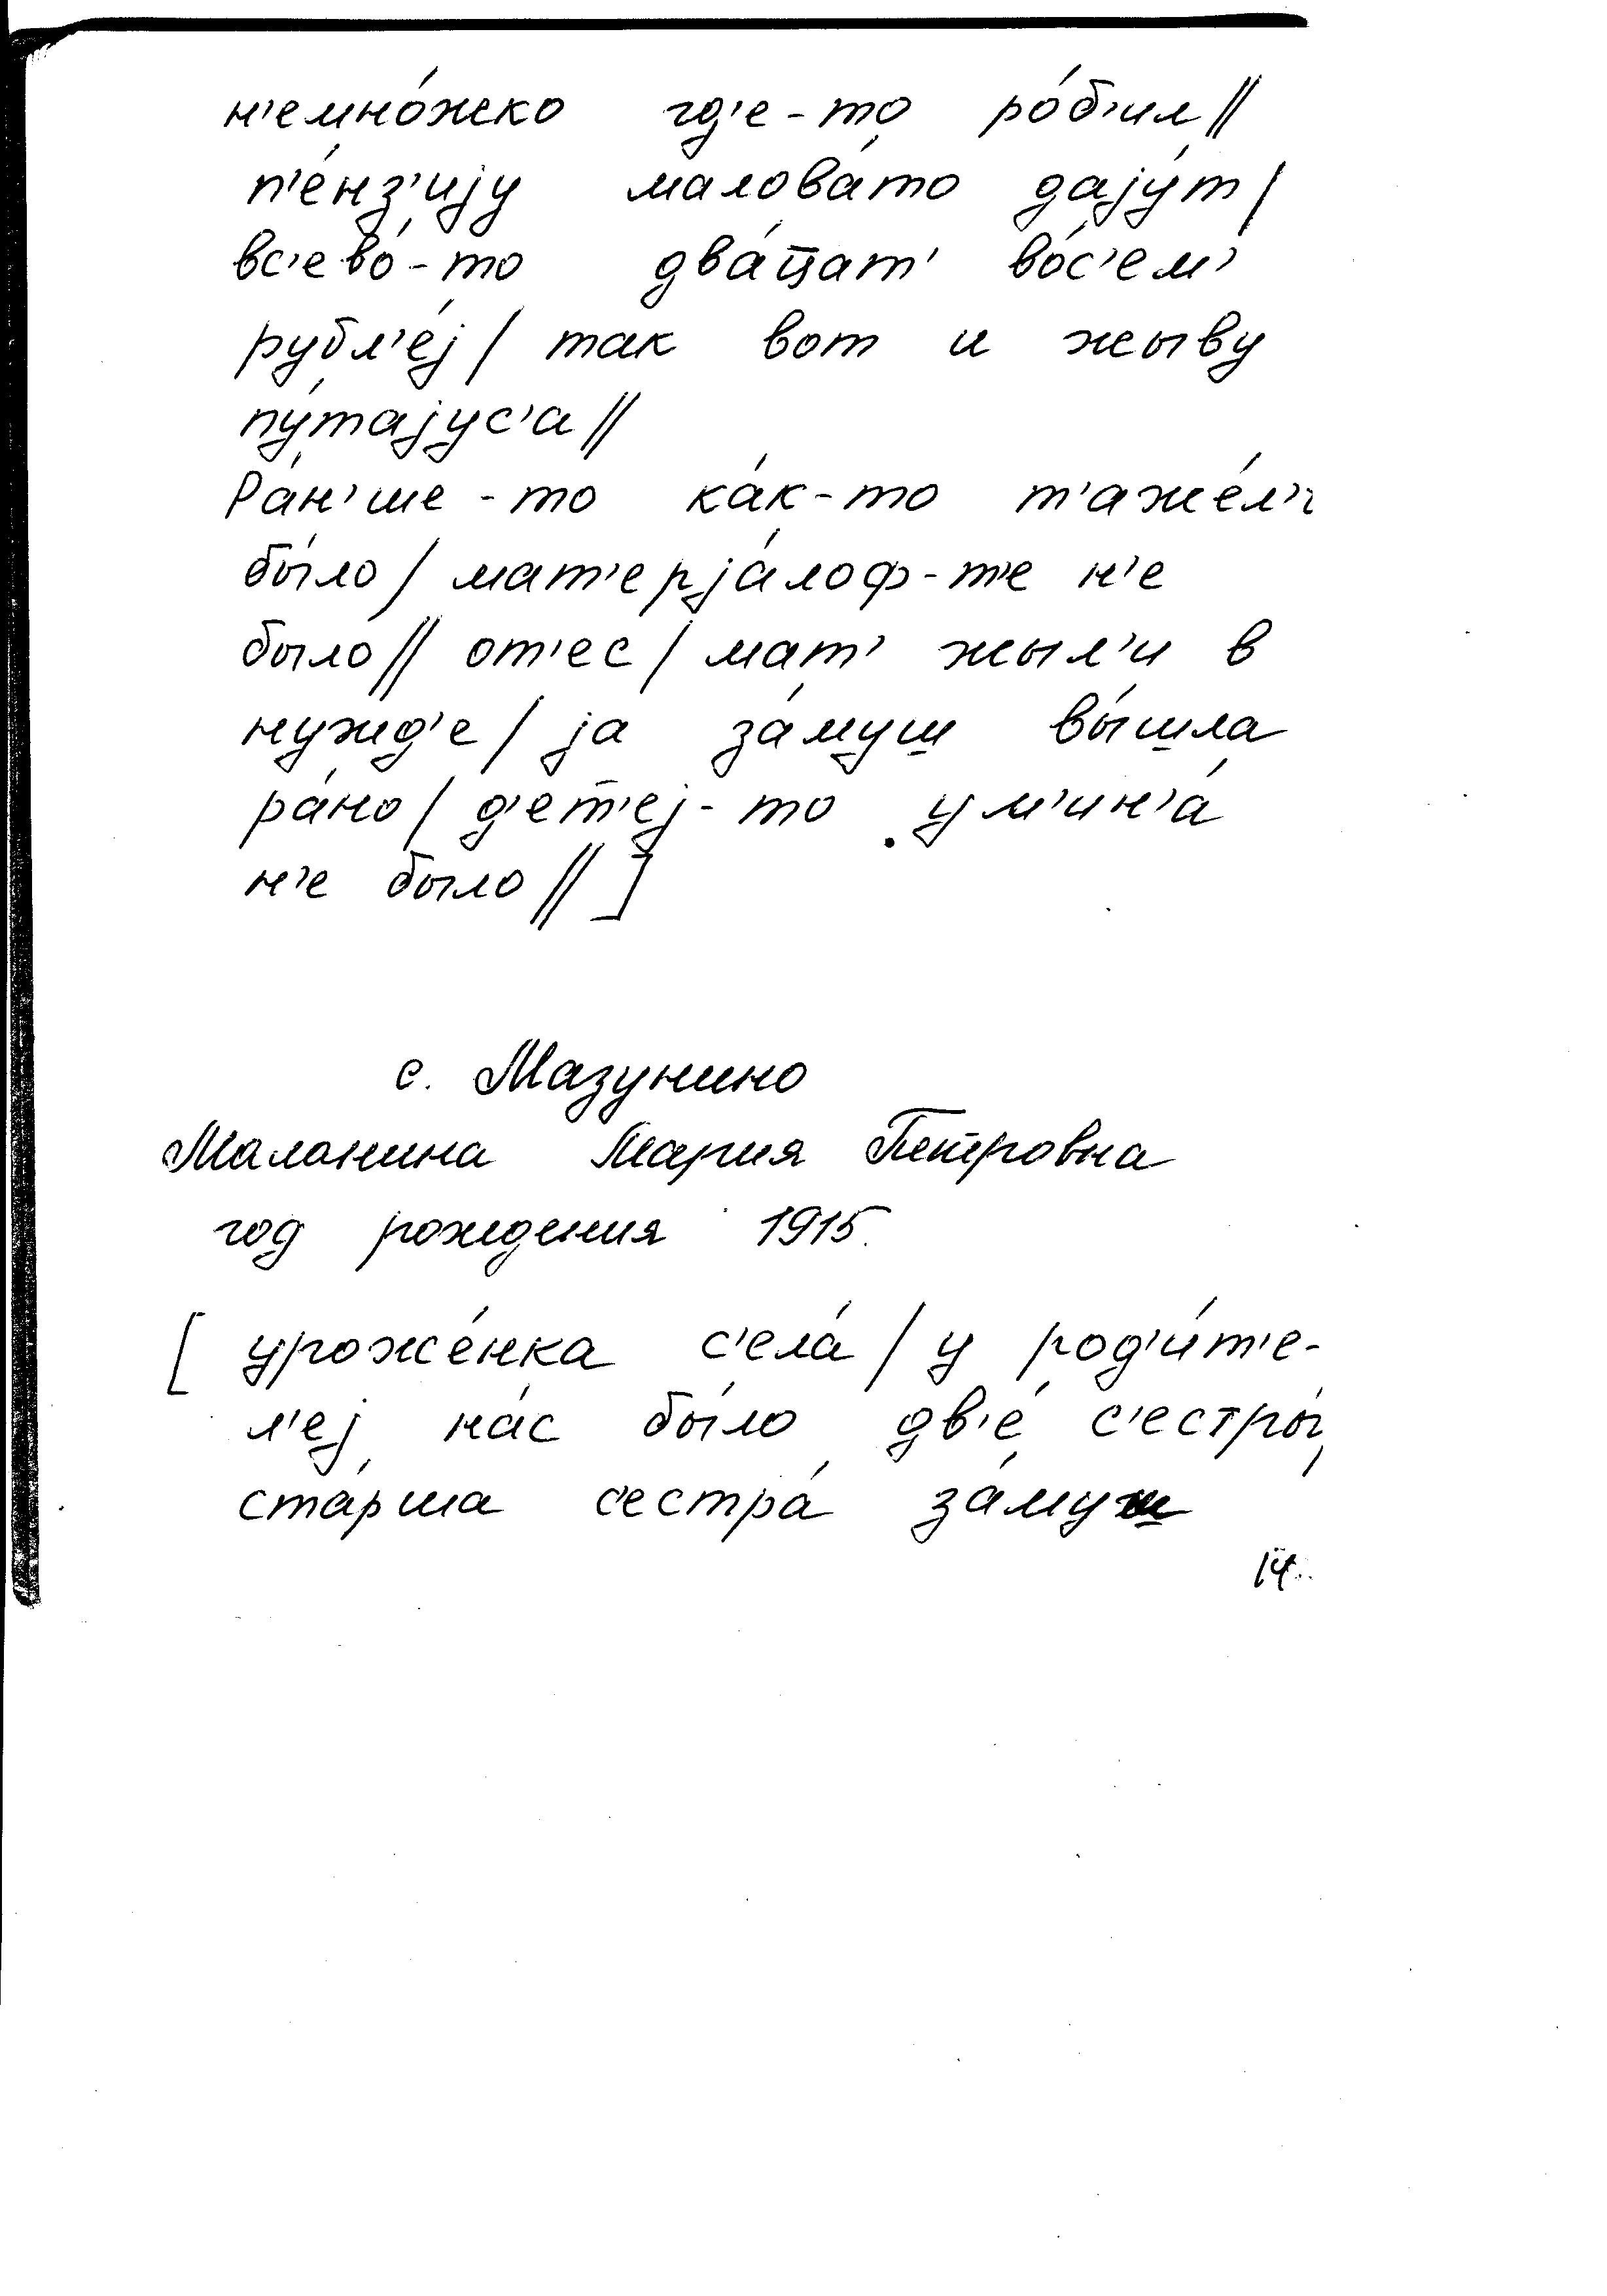 н'емно́жко гд'е-то ро́б'ил//
п'е́нз'иjу малова́то даjу́т/
вс'ево́-то два́ц̄ат' во́с'ем'
рубл'е́j/ так вот и жыву
пу́таjус'а//
Ра́н'ше-то ка́к-то т'аже́л
бы́ло/ мат'ерjа́лоф-т'е н'е
было// от'ес/ мат' жыл'и в
нужд'е/ jа за́муш вы́шла
ра́но/ д'ет'еj-то ум'ин'а́
н'е было//]
с. Мазунино
Маланина Мария Петровна
год рождения 1915
[уроже́нка с'ела́/ у род'и́т'е-
л'еj на́с бы́ло дв'е́ с'естры́,
ста́рша с'естра́ за́муш
14